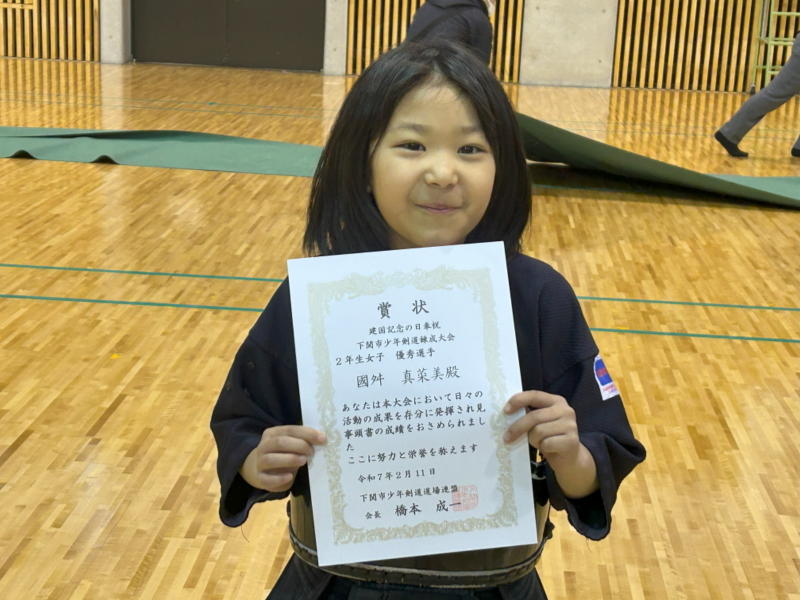 賞状
建国記念の日奉祝
下関市少年剣道錬成大会
2年生女子 優秀選手
國舛 真菜美殿
あなたは本大会において日々の
活動の成果を存分に発揮され見
事頭書の成績をおさめられまし
た
ここに努力と栄誉を称えます
令和7年2月11日
下関市少年剣道道場連盟
会長 橋本 成一